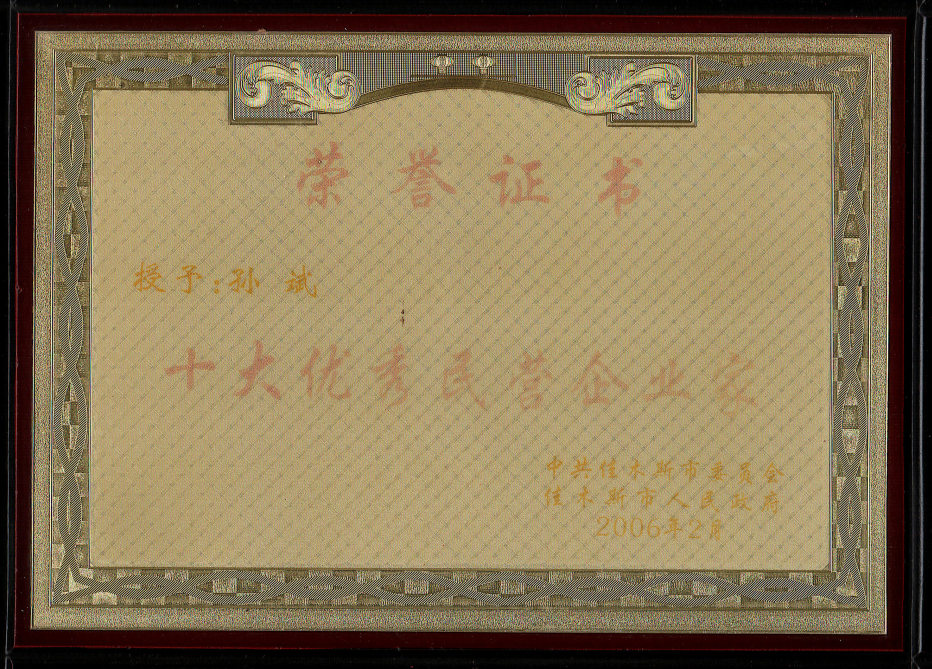 荣誉证书
授予:孙 斌
十大优秀民营企业家
中共佳木斯市委员会
佳木斯市人民政府
2006年2月